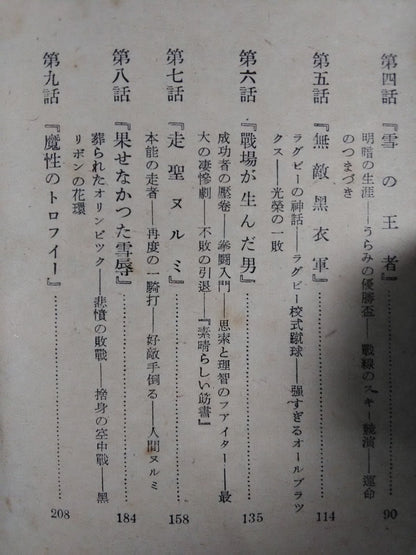 第四話 『雪の王者』 90
明暗の生涯――うらみの優勝盃 戰線のスキー競演――運命
のつまづき
第五話 『無敵黑衣軍』 114
ラグビーの神話――ラグビー校式蹴球――强すぎるオールブラツ
クス――光榮の一敗
第六話 『戰場が生んだ男』 135
成功者の壓卷――拳鬪入門 思索と理智のフアイター――最
大の凄慘劇――不敗の引退 『素晴らしい筋書』
第七話 『走聖ヌルミ』 158
本能の走者――再度の一騎打――好敵手倒る――人間ヌルミ
第八話 『果せなかつた雪辱』 184
葬られたオリンピツク――悲憤の敗戰――捨身の空中戰――黑
リボンの花環
第九話 『魔性のトロフイー』 208